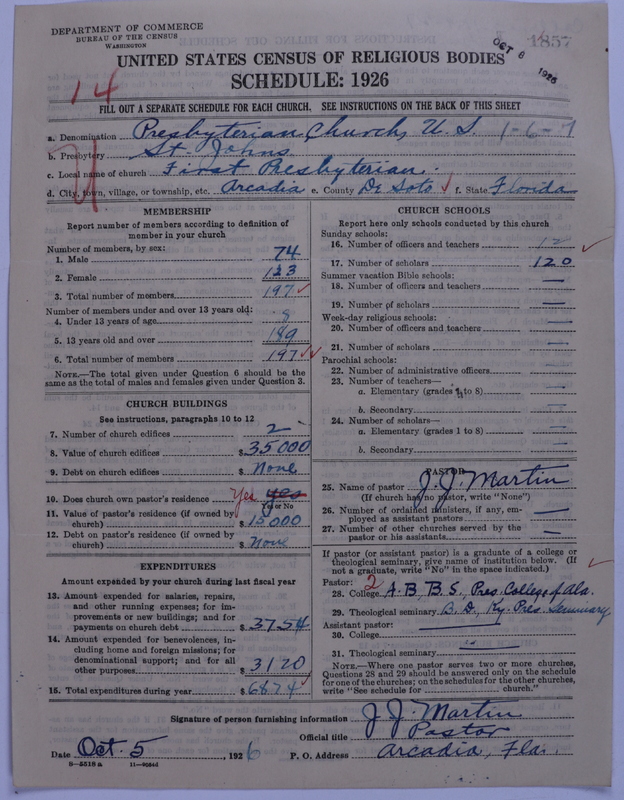 DEPARTMENT OF COMMERCE
BUREAU OF THE CENSUS
WASHINGTON
OCT 6 1926
1857
UNITED STATES CENSUS OF RELIGIOUS BODIES
SCHEDULE: 1926
14
FILL OUT A SEPARATE SCHEDULE FOR EACH CHURCH. SEE INSTRUCTIONS ON THE BACK OF THIS SHEET
a. Denomination Presbyterian Church, U. S. 1-6-7
b. Presbytery St. Johns
c. Local name of church First Presbyterian.
d. City, town, village, or township, etc. Arcadia e. County De Soto f. State Florida
MEMBERSHIP
Report number of members according to definition of
member in your church
Number of members, by sex:
1. Male 74
2. Female 123
3. Total number of members 197
Number of members under and over 13 years old:
4. Under 13 years of age 8
5. 13 years old and over 189
6. Total number of members 197
NOTE.—The total given under Question 6 should be
same as the total of males and females given under Question 3.
CHURCH BUILDINGS
See instructions, paragraphs 10 to 12
7. Number of church edifices 2
8. Value of church edifices $ 35000
9. Debt on church edifices $ None
10. Does church own pastor's residence Yes yes
Yes or No
11. Value of pastor's residence (if owned by
church) $ 15000
12. Debt on pastor's residence (if owned by
church) $ None
EXPENDITURES
Amount expended by your church during last fiscal year
13. Amount expended for salaries, repairs,
and other running expenses; for im-
provements or new buildings; and for
payments on church debt $ 3754
14. Amount expended for benevolences, in-
cluding home and foreign missions; for
denominational support; and for all
other purposes $ 3120
15. Total expenditures during year $ 6874
CHURCH SCHOOLS
Report here only schools conducted by this church
Sunday schools:
16. Number of officers and teachers 12
17. Number of scholars 120
Summer vacation Bible schools:
18. Number of officers and teachers —
19. Number of scholars —
Week-day religious schools:
20. Number of officers and teachers —
21. Number of scholars —
Parochial schools:
22. Number of administrative officers —
23. Number of teachers—
a. Elementary (grades 1 to 8) —
b. Secondary —
24. Number of scholars—
a. Elementary (grades 1 to 8) —
b. Secondary —
PASTOR
25. Name of pastor J. J. Martin
(If church has no pastor, write "None")
26. Number of ordained ministers, if any, em-
ployed as assistant pastors —
27. Number of other churches served by the
pastor or his assistants —
If pastor (or assistant pastor) is a graduate of a college or
theological seminary, give name of institution below. (If
not a graduate, write "No" in the space indicated.)
Pastor: 2
28. College A. B., B. S., Pres. College of Ala.
29. Theological seminary B. D., Ky. Pres. Seminary
Assistant pastor:
30. College —
31. Theological seminary —
NOTE.—Where one pastor serves two or more churches,
Questions 28 and 29 should be answered only on the schedule
for one of the churches; on the schedules for the other churches,
write "See schedule for church."
Signature of person furnishing information J. J. Martin
Official title Pastor
Date Oct. 5, 1926 P. O. Address Arcadia, Fla.
8—5518 a